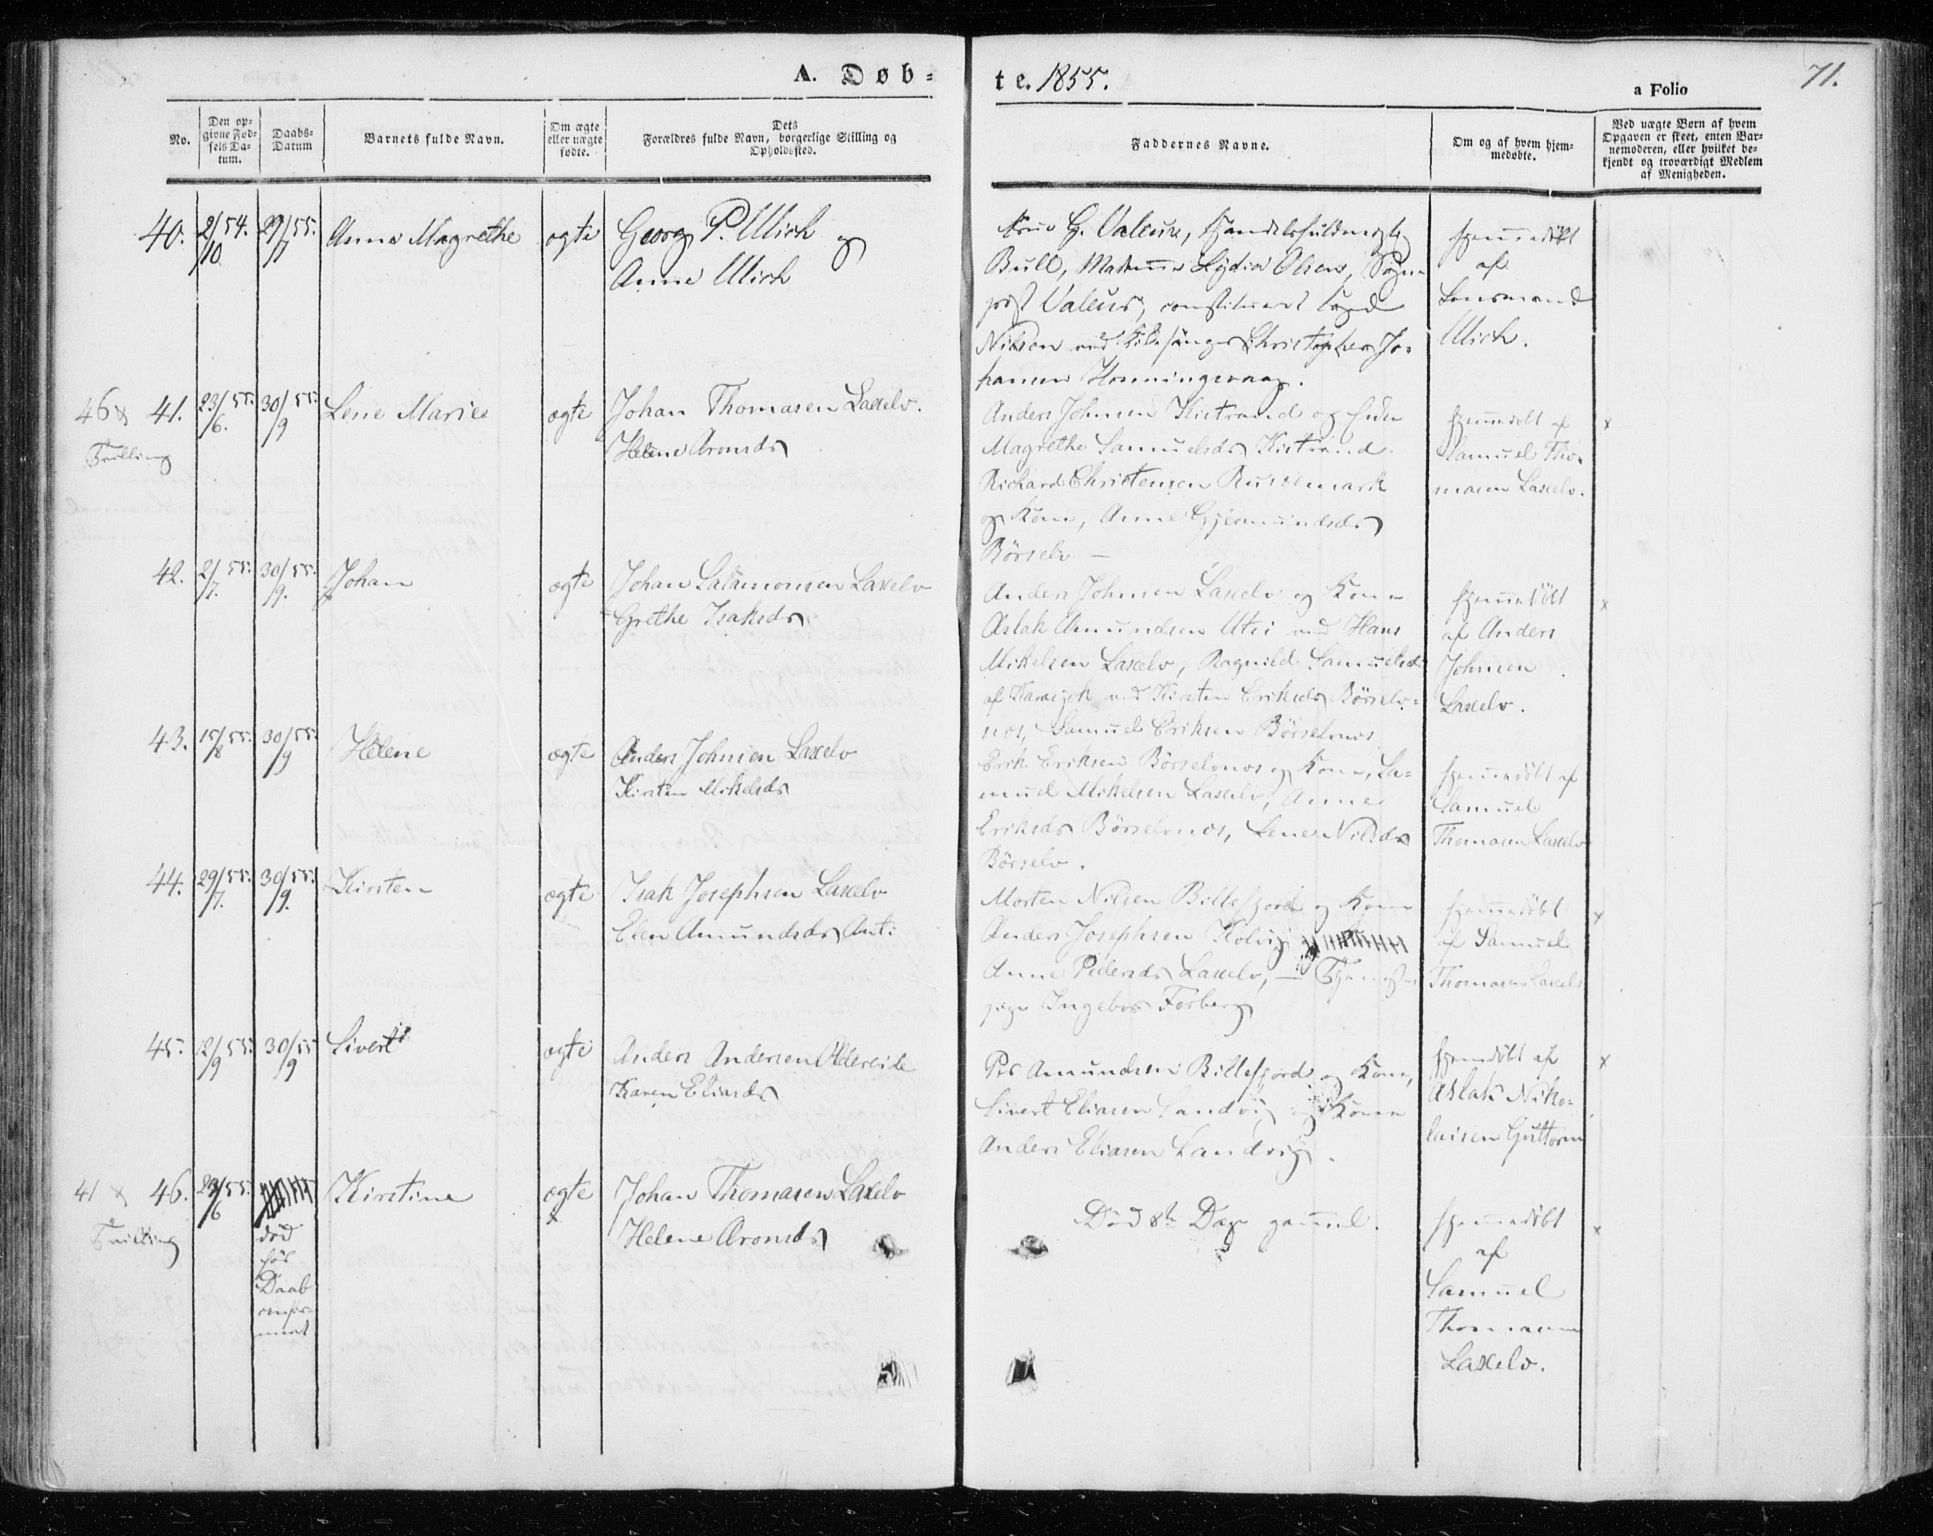 A. Døb-
te. 1855.
a Folio
71.
No.
Den op-
givne Fød-
sels Da-
tum.
Daabs-
Datum
Barnets fulde Navn.
Om ægte
eller uægte
fødte.
Dets
Forældres fulde Navn, borgerlige Stilling og
Opholdssted.
Faddernes Navne.
Om og af hvem hjem-
medøbte.
Ved uægte Børn af hvem
Opgaven er skeet, enten Bar-
nemoderen, eller hvilket be-
kjendt og troværdigt Medlem
af Menigheden.
40. 2/10 54. 29/7 55. Anne Magrethe ægte Georg P. Ulich og
Anne Ulich
G. Valeur,
Bull, Lydia Olsen, Sogne-
præst Valeur, constitueret
Nilsen Kirkesanger Christopher Jo-
hansen Honningsvaag.
hjemmedøbt
af
Lensmand
Ulich.
46 x 41. 23/6 55. 30/9 55. Lene Marie ægte Johan Thomasen Laxelv.
Tvilling
Helene Aronsdr
Anders Johnsen Kistrand og
Magrethe Samuelsdr Kistrand.
Richard Christensen
og Kone, Anne Gjermundsdr
Börselv –
hjemmedøbt af
Samuel Tho-
masen Laxelv.
x
42. 2/7 55. 30/9 55. Johan ægte Johan Salamonsen Laxelv
Grethe Isaksdr
Anders Johnsen Laxelv og Kone
Aslak Amundsen Utsi Hans
Mikelsen Laxelv, Ragnild Samuelsd
af Karasjok Kirsten Eriksdr Börselv-
nes, Samuel Eriksen Börselvnes
hjemmedöbt
af Anders
Johnsen
Laxelv.
x
43. 15/8 55. 30/9 55. Helene ægte Anders Johnsen Laxelv
Kirsten Mikelsdr
Erik Eriksen Börselvnes og Kone, Sa-
muel Mikelsen Laxelv, Anne
Eriksdr Börselvnes, Lene Nilsdr
Börselv.
hjemmedöbt af
Samuel
Thomasen Laxelv
44. 29/7 55. 30/9 55. Kirsten ægte Isak Josephsen Laxelv
Elen Amundsdr Anti
Morten Nilsen Billefjord og Kone
Anders Josephsen Kolvig
Anne Pedersdr Laxelv, – Tjeneste-
pige Ingebor Forberg
hjemmedøbt
af Samuel
Thomasen Laxelv
x
45. 12/9 55. 30/9 55 Sivert ægte Anders Andersen Oldereide
Karen Eliasdr
Per Amundsen Billefjord og Kone,
Sivert Eliasen Sandvig og Kone
Anders Eliasen Sandvig.
hjemdöbt af
Aslak Niko-
laisen Guttorm
x
41 x 46. 23/6 55. Kirstine ægte Johan Thomasen Laxelv
Tvilling
død
før
Daab
x
Helene Aronsdr
Död 8te Dag gammel.
hjemmedöbt
af
Samuel
Thomasen
Laxelv.
x